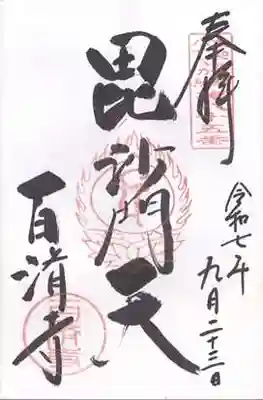 奉拝
令和七年九月二十三日
毘沙門天
百済寺